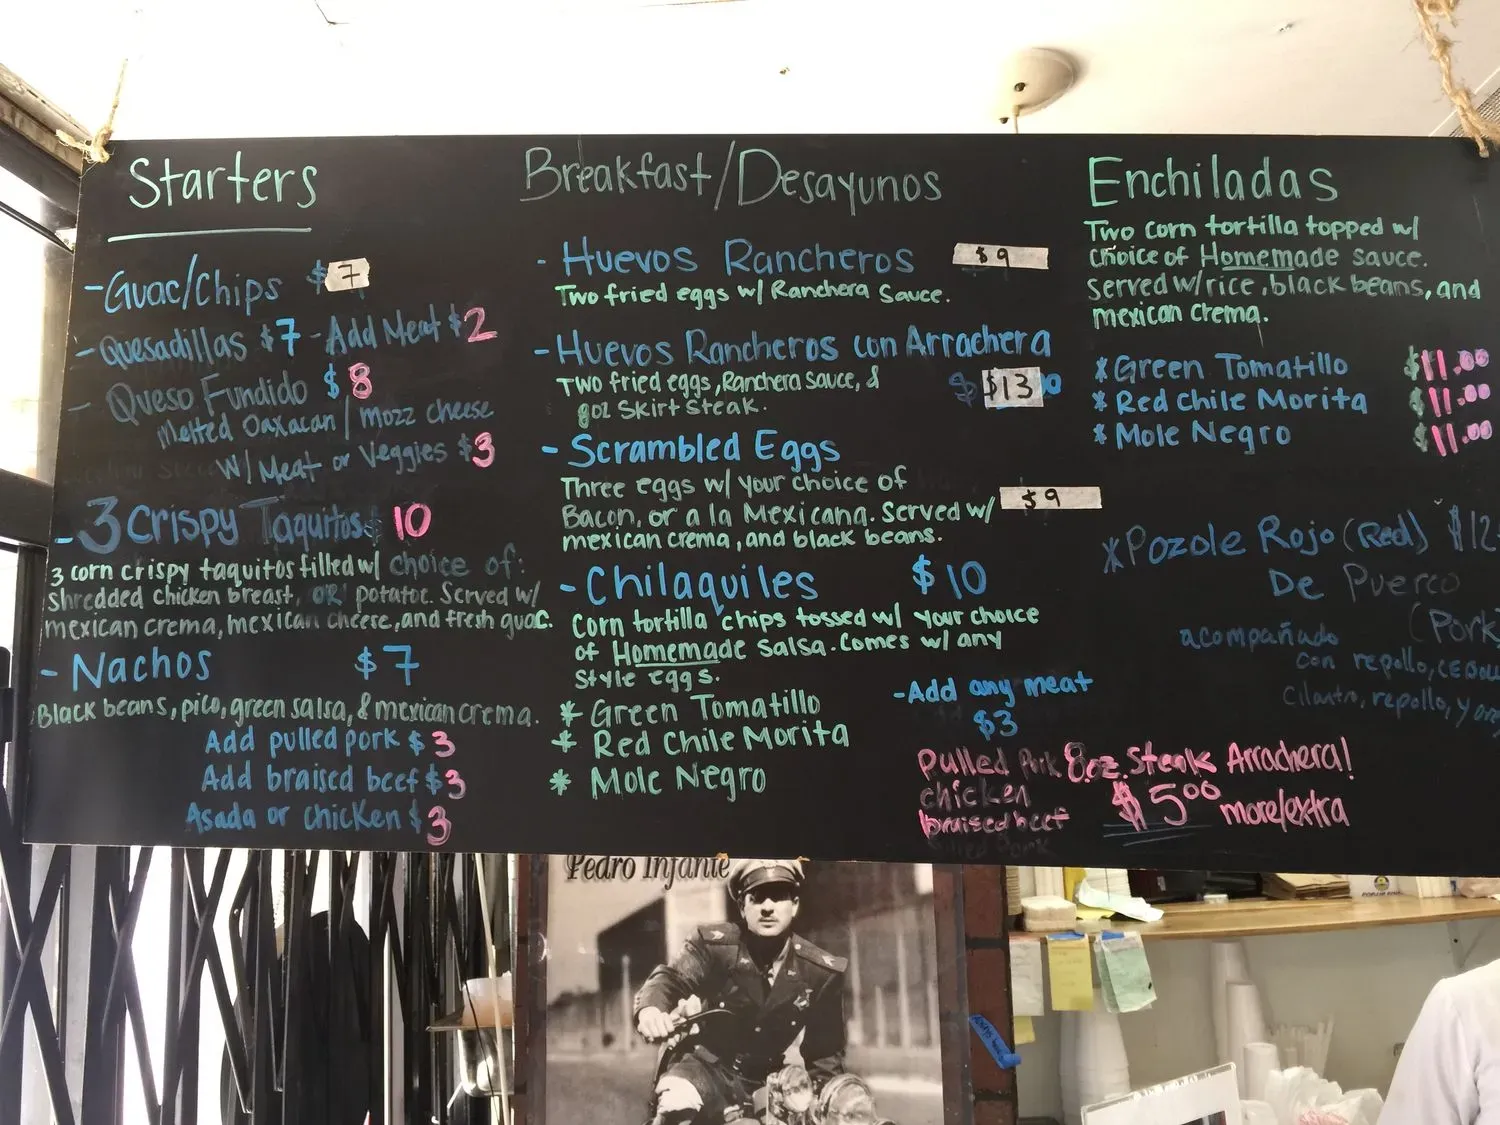 Starters
- Guac/Chips $7
- Quesadillas $7 - Add Meat $2
- Queso Fundido $8
Melted Oaxacan / mozz cheese
w/ Meat or Veggies $3
- 3 Crispy Taquitos $10
3 corn crispy taquitos filled w/ choice of:
shredded chicken breast, or potatoe. Served w/
mexican crema, mexican cheese, and fresh guac.
- Nachos $7
Black beans, pico, green salsa, & mexican crema.
Add pulled pork $3
Add braised beef $3
Asada or chicken $3
Breakfast/Desayunos
- Huevos Rancheros $9
Two fried eggs w/ Ranchera Sauce.
- Huevos Rancheros con Arrachera
Two fried eggs, Ranchera Sauce, & $13
8oz Skirt Steak.
- Scrambled Eggs
Three eggs w/ your choice of
Bacon, or a la Mexicana. Served w/ $9
mexican crema, and black beans.
- Chilaquiles $10
Corn tortilla chips tossed w/ your choice
of Homemade Salsa. Comes w/ any
style eggs.
* Green Tomatillo
* Red Chile Morita
* Mole Negro
- Add any meat
$3
Pulled Pork
chicken
braised beef
8oz. Steak Arrachera!
$5.00 more/extra
Enchiladas
Two corn tortilla topped w/
choice of Homemade sauce.
Served w/ rice, black beans, and
mexican crema.
* Green Tomatillo $11.00
* Red Chile Morita $11.00
* Mole Negro $11.00
* Pozole Rojo (Red) $12
De Puerco
(Pork)
acompañado
con repollo,
Cilantro, repollo, y
Pedro Infante